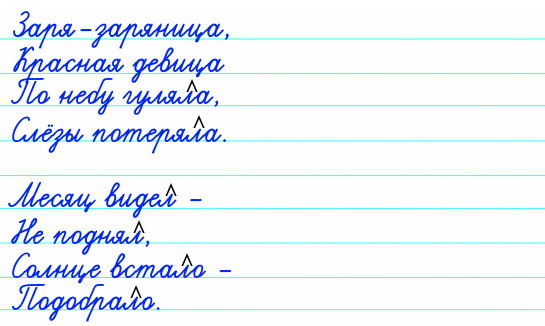 Заря-заряница,
Красная девица
По небу гуляла,
Слёзы потеряла.
Месяц видел –
Не поднял,
Солнце встало –
Подобрало.